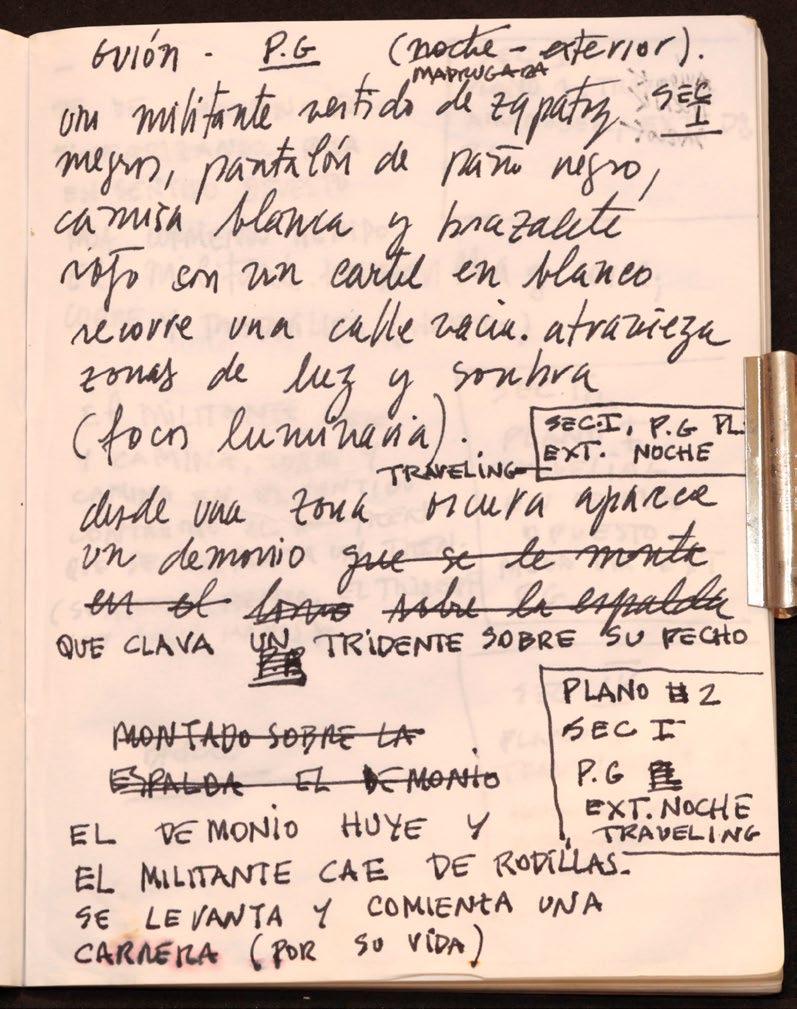 GUIÓN - P.G (noche - exterior).
MADRUGADA
un militante vestido de zapatos SEC I
negros, pantalón de paño negro,
camisa blanca y brazalete
rojo con un cartel en blanco
recorre una calle vacia. atravieza
zonas de luz y sombra
(focos luminaria).
SEC.I, P.G PL.
EXT. NOCHE
TRAVELING
desde una zona oscura aparece
un demonio que se le monta
en el lomo sobre la espalda
QUE CLAVA UN TRIDENTE SOBRE SU PECHO
PLANO # 2
SEC I
P.G
EXT. NOCHE
TRAVELING
MONTADO SOBRE LA
ESPALDA EL DEMONIO
EL DEMONIO HUYE Y
EL MILITANTE CAE DE RODILLAS.
SE LEVANTA Y COMIENZA UNA
CARRERA (POR SU VIDA)